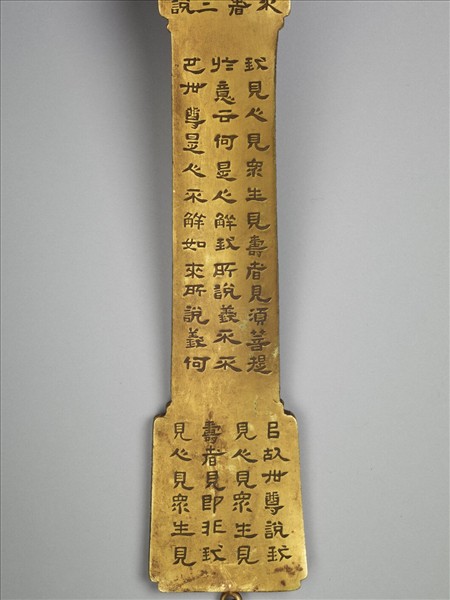 者
說
我見人見眾生見壽者見須菩提
於意云何是人解我所說義不不
也世尊是人不解如來所說義何
以故世尊說我
見人見眾生見
壽者見即非我
見人見眾生見